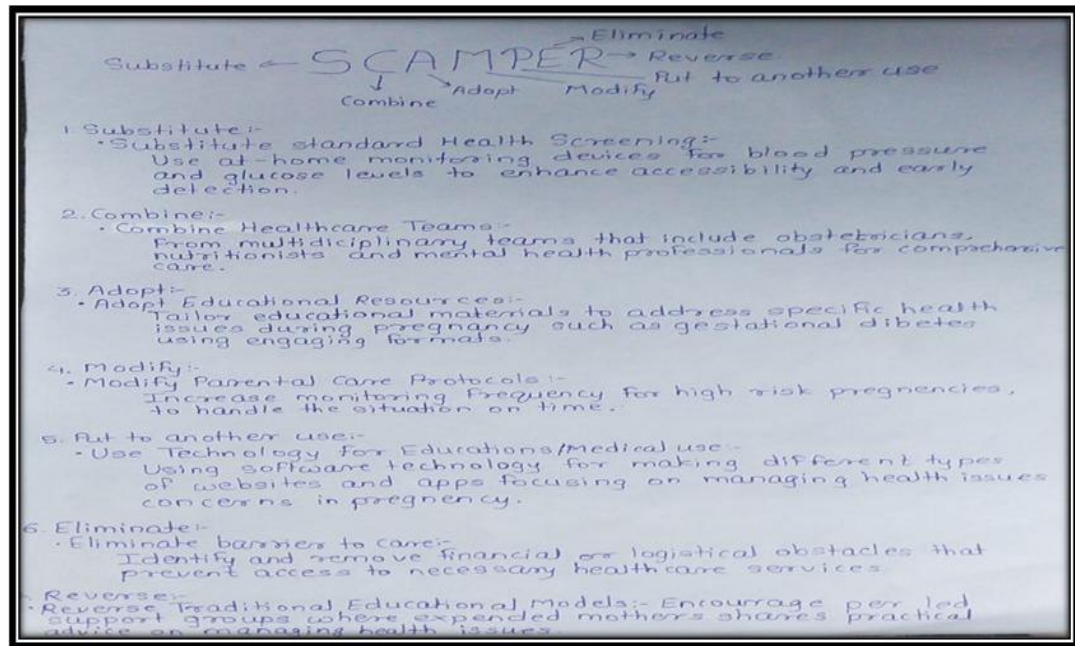 Eliminate
Substitute ← SCAMPER → Reverse
Put to another use
Combine Adopt Modify
1. Substitute:-
• Substitute standard Health Screening:-
Use at-home monitoring devices for blood pressure
and glucose levels to enhance accessibility and early
detection.
2. Combine:-
• Combine Healthcare Teams:-
From multidiciplinary teams that include obstetricians,
nutritionists and mental health professionals for comprehensive
care.
3. Adopt:-
• Adopt Educational Resources:-
Tailor educational materials to address specific health
issues during pregnancy such as gestational dibetes
using engaging formats.
4. Modify:-
• Modify Parental Care Protocols:-
Increase monitoring frequency for high risk pregnencies,
to handle the situation on time.
5. Put to another use:-
• Use Technology for Educations/Medical use:-
Using software technology for making different types
of websites and apps focusing on managing health issues
concerns in pregnency.
6. Eliminate:-
• Eliminate barrier to care:-
Identify and remove financial or logistical obstacles that
prevent access to necessary healthcare services.
Reverse:-
• Reverse Traditional Educational Models:- Encourage per led
support groups where expended mothers shares practical
advice on managing health issues.